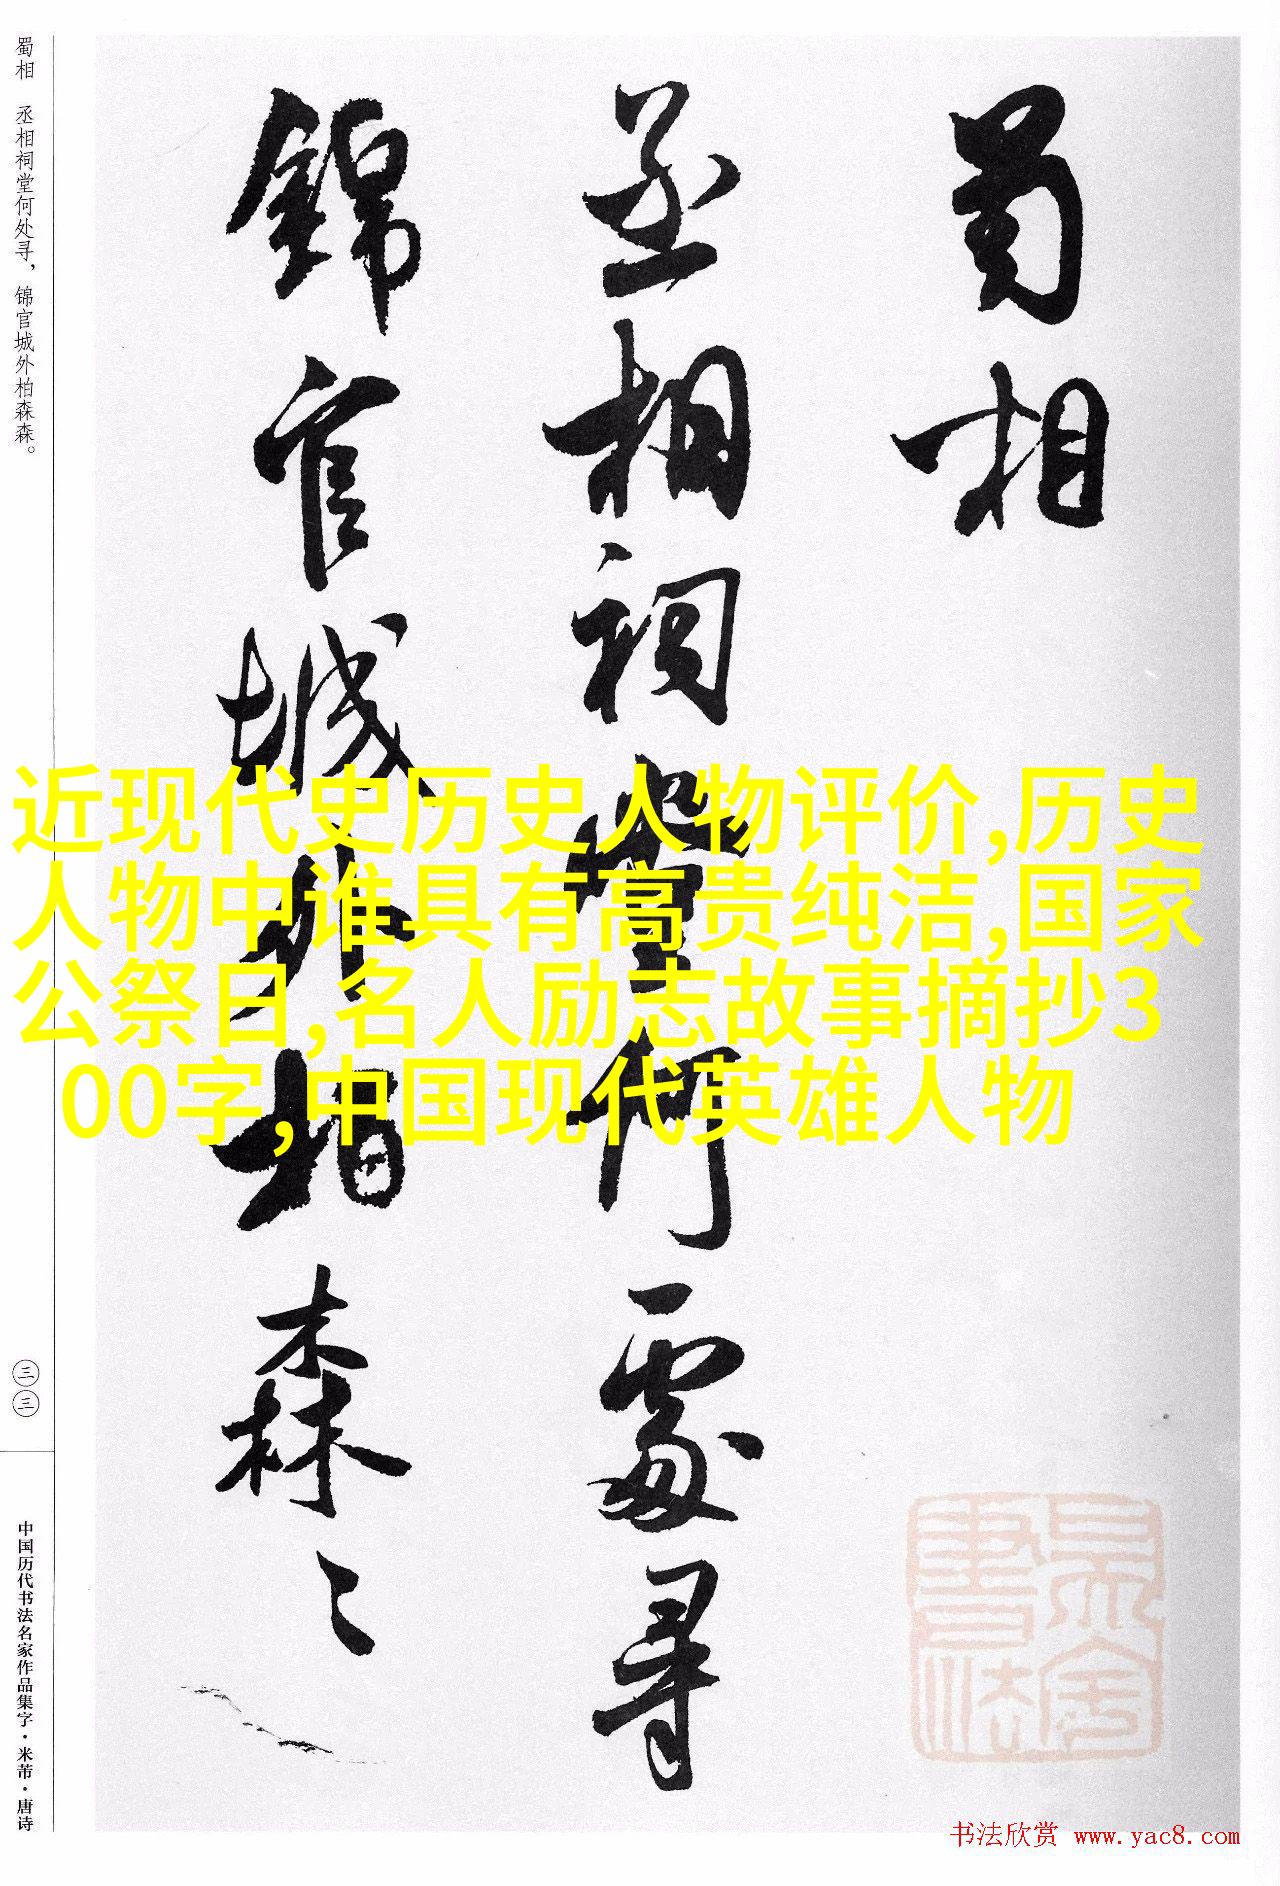 蜀相
丞相祠堂何處尋
錦官城外柏森〻
蜀相 丞相祠堂何处寻，锦官城外柏森森。
三三
中国历代书法名家作品集字·米芾·唐诗
近现代史历史人物评价,历史
人物中谁具有高贵纯洁,国家
公祭日,名人励志故事摘抄3
00字,中国现代英雄人物
书法欣赏 www.yac8.com